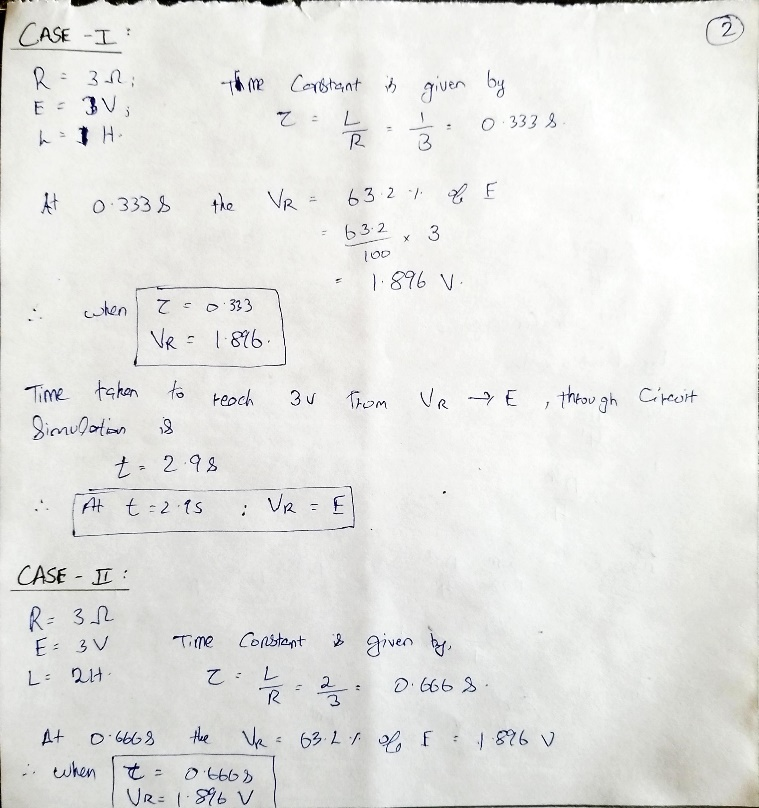 2
CASE - I :
R = 3 Ω;
E = 3V;
L = 1 H.
Time Constant is given by
τ = L/R = 1/3 = 0.333 s.
At 0.333 s the VR = 63.2 % of E
= 63.2/100 x 3
= 1.896 V.
∴ when τ = 0.333
VR = 1.896.
Time taken to reach 3v from VR → E, through Circuit
Simulation is
t = 2.9 s
∴ At t = 2.9s ; VR = E
CASE - II :
R = 3 Ω
E = 3 V
L = 2H.
Time Constant is given by,
τ = L/R = 2/3 = 0.666 s.
At 0.666s the VR = 63.2 % of E = 1.896 V
∴ when t = 0.666s
VR = 1.896 V